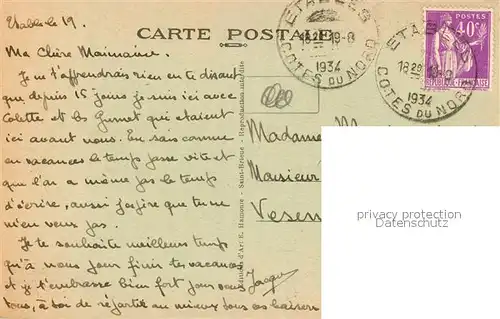 Etables le 19.
CARTE POSTALE
Ma Chère Mainaine.
Je ne t'apprendrais rien en te disant
que depuis 15 jours je suis ici avec
Colette et les Gunot qui etaient
ici avant nous. Tu sais comme
en vacances le temps passe vite et
que l'on a même pas le temps
d'écrire, aussi j'espère que tu ne
m'en veux pas.
Je te souhaite meilleurs temps
qu'à nous pour finir tes vacances
et je t'embrasse bien fort pour nous
tous, à toi de répartir au mieux tous ces baisers
Jacques
ETABLES
18 20 19-8
1934
COTES DU NORD
ETABLES
18 20 19-8
1934
COTES DU NORD
POSTES
40c
REPUBLIQUE FRANÇAISE
Édition d'Art E. Hamonic - Saint-Brieuc - Reproduction interdite
Madame
Monsieur
Vesen
privacy protection
Datenschutz